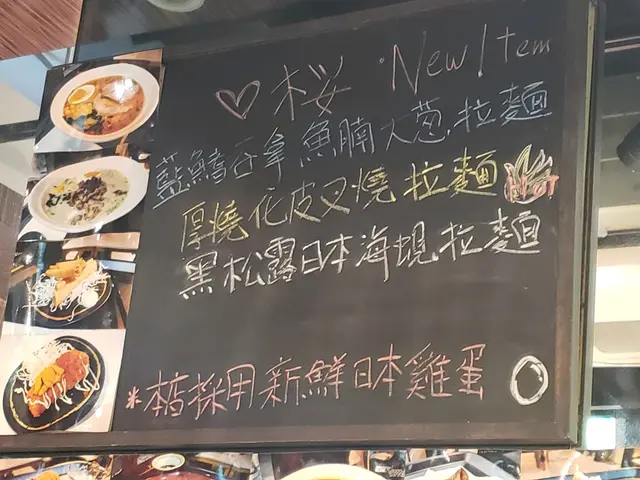 ♡桜 ·New Item
藍鰭吞拿魚腩大葱拉麵
厚燒花皮叉燒拉麵 HOT
黑松露日本海蜆拉麵
*本店採用新鮮日本雞蛋